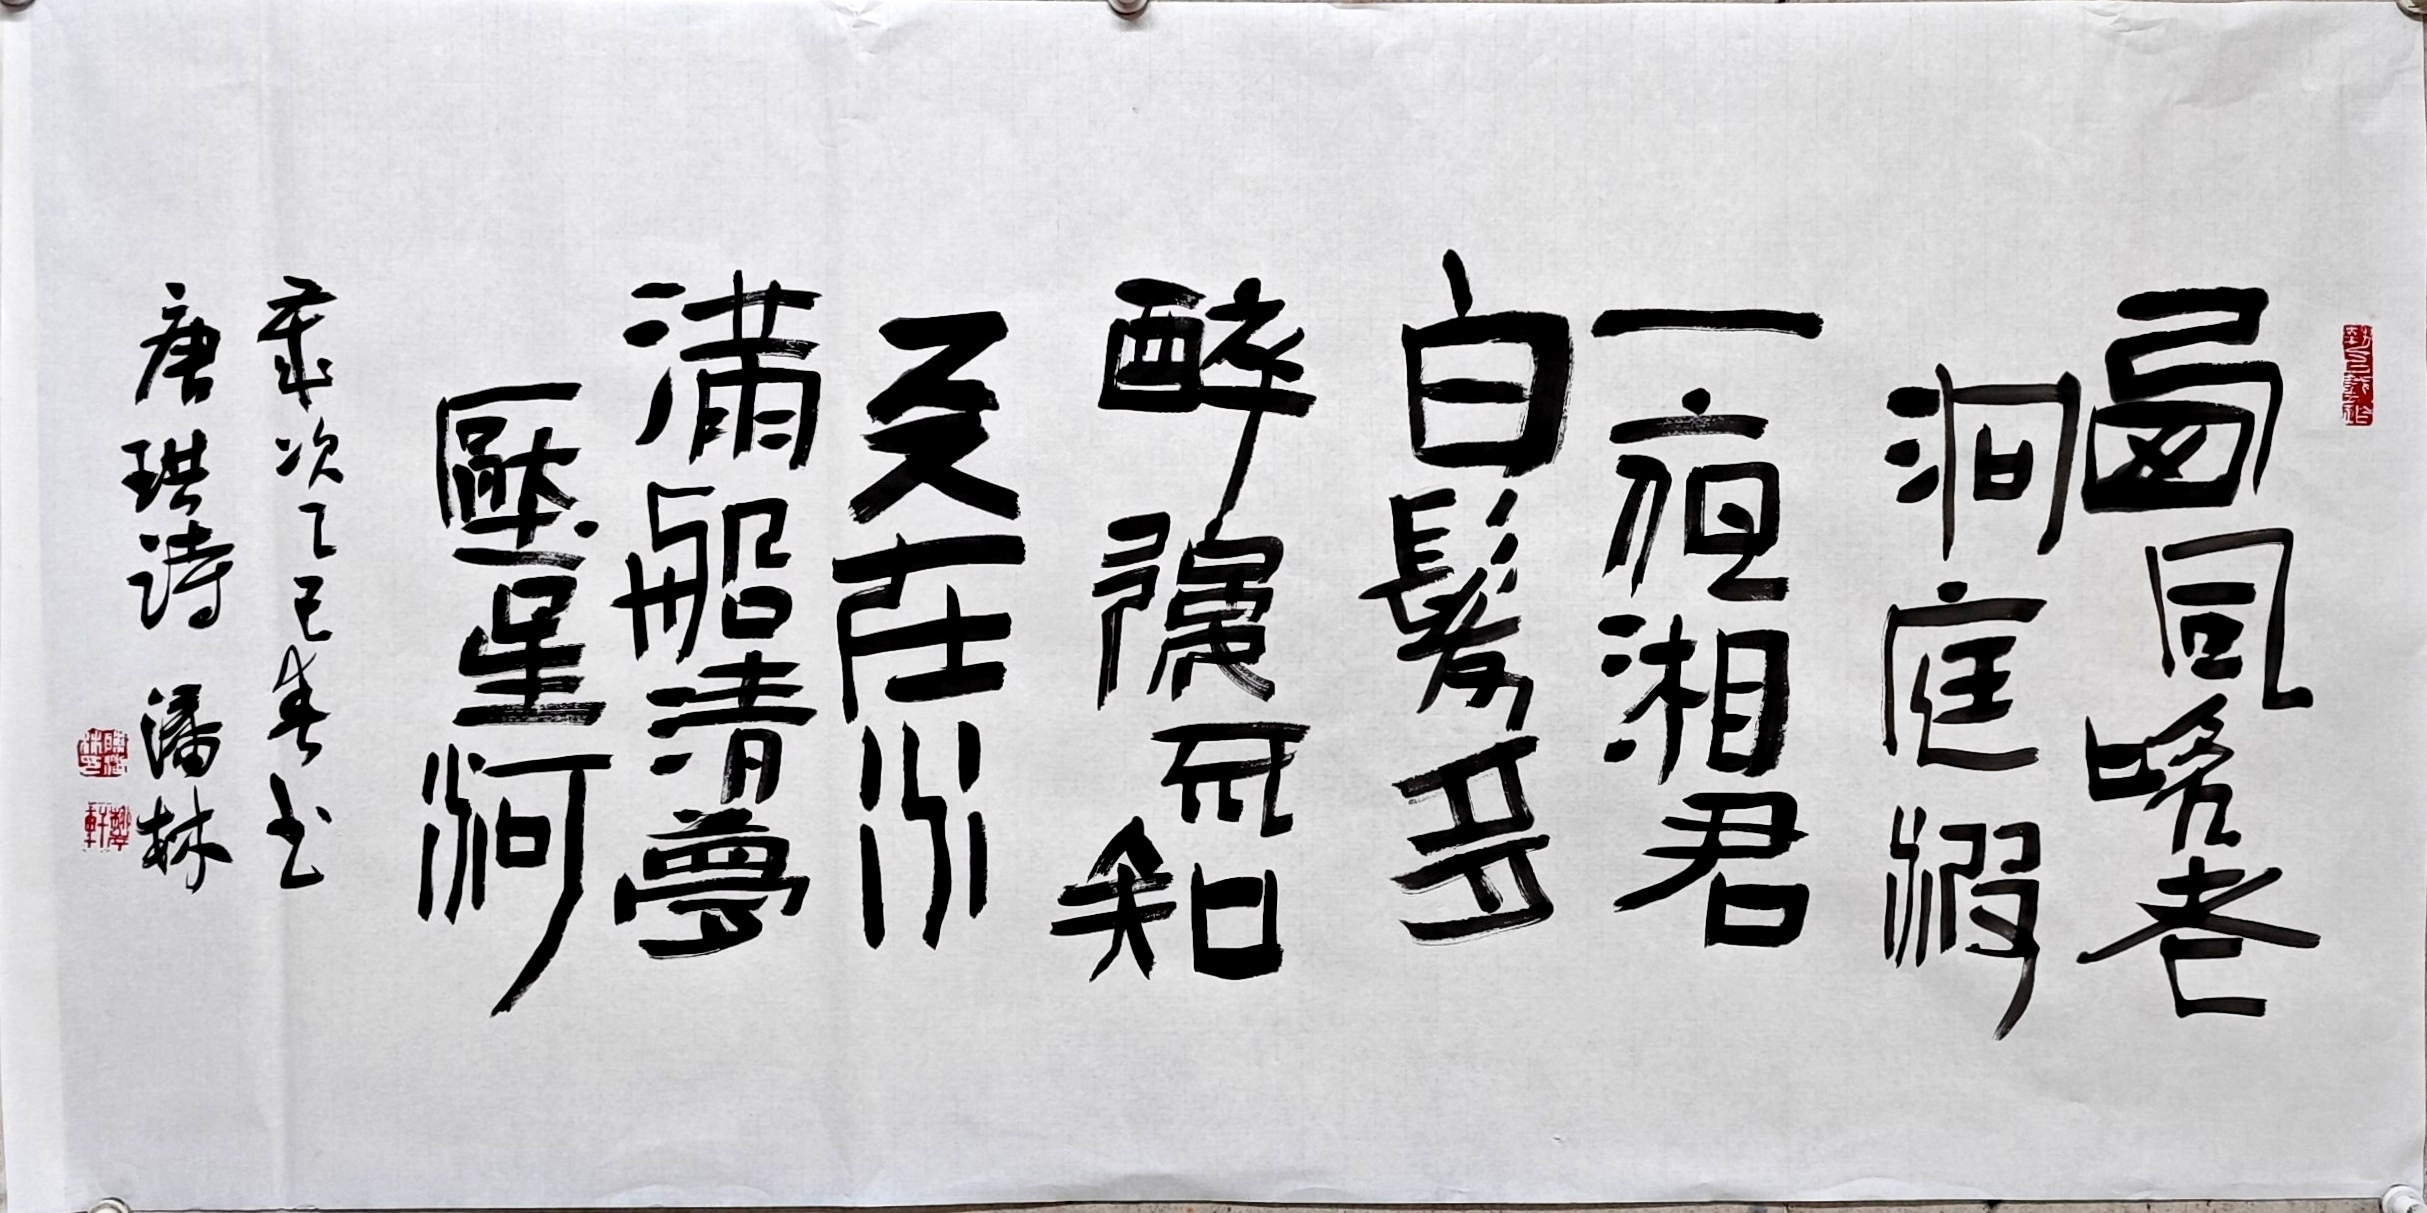 西風吹老
洞庭波
一夜湘君
白髮多
醉後不知
天在水
滿船清夢
壓星河
歲次乙巳春书
唐珙詩 潘林